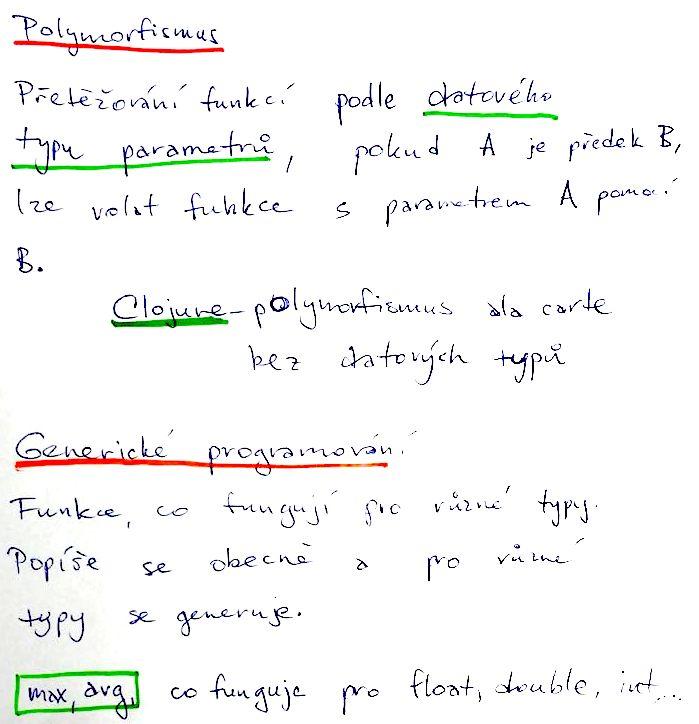 Polymorfismus
Přetěžování funkcí podle datového
typu parametrů, pokud A je předek B,
lze volat funkce s parametrem A pomocí
B.
Clojure - polymorfismus ala carte
bez datových typů
Generické programování
Funkce, co fungují pro různé typy.
Popíše se obecně a pro různé
typy se generuje.
max, avg, co funguje pro float, double, int...